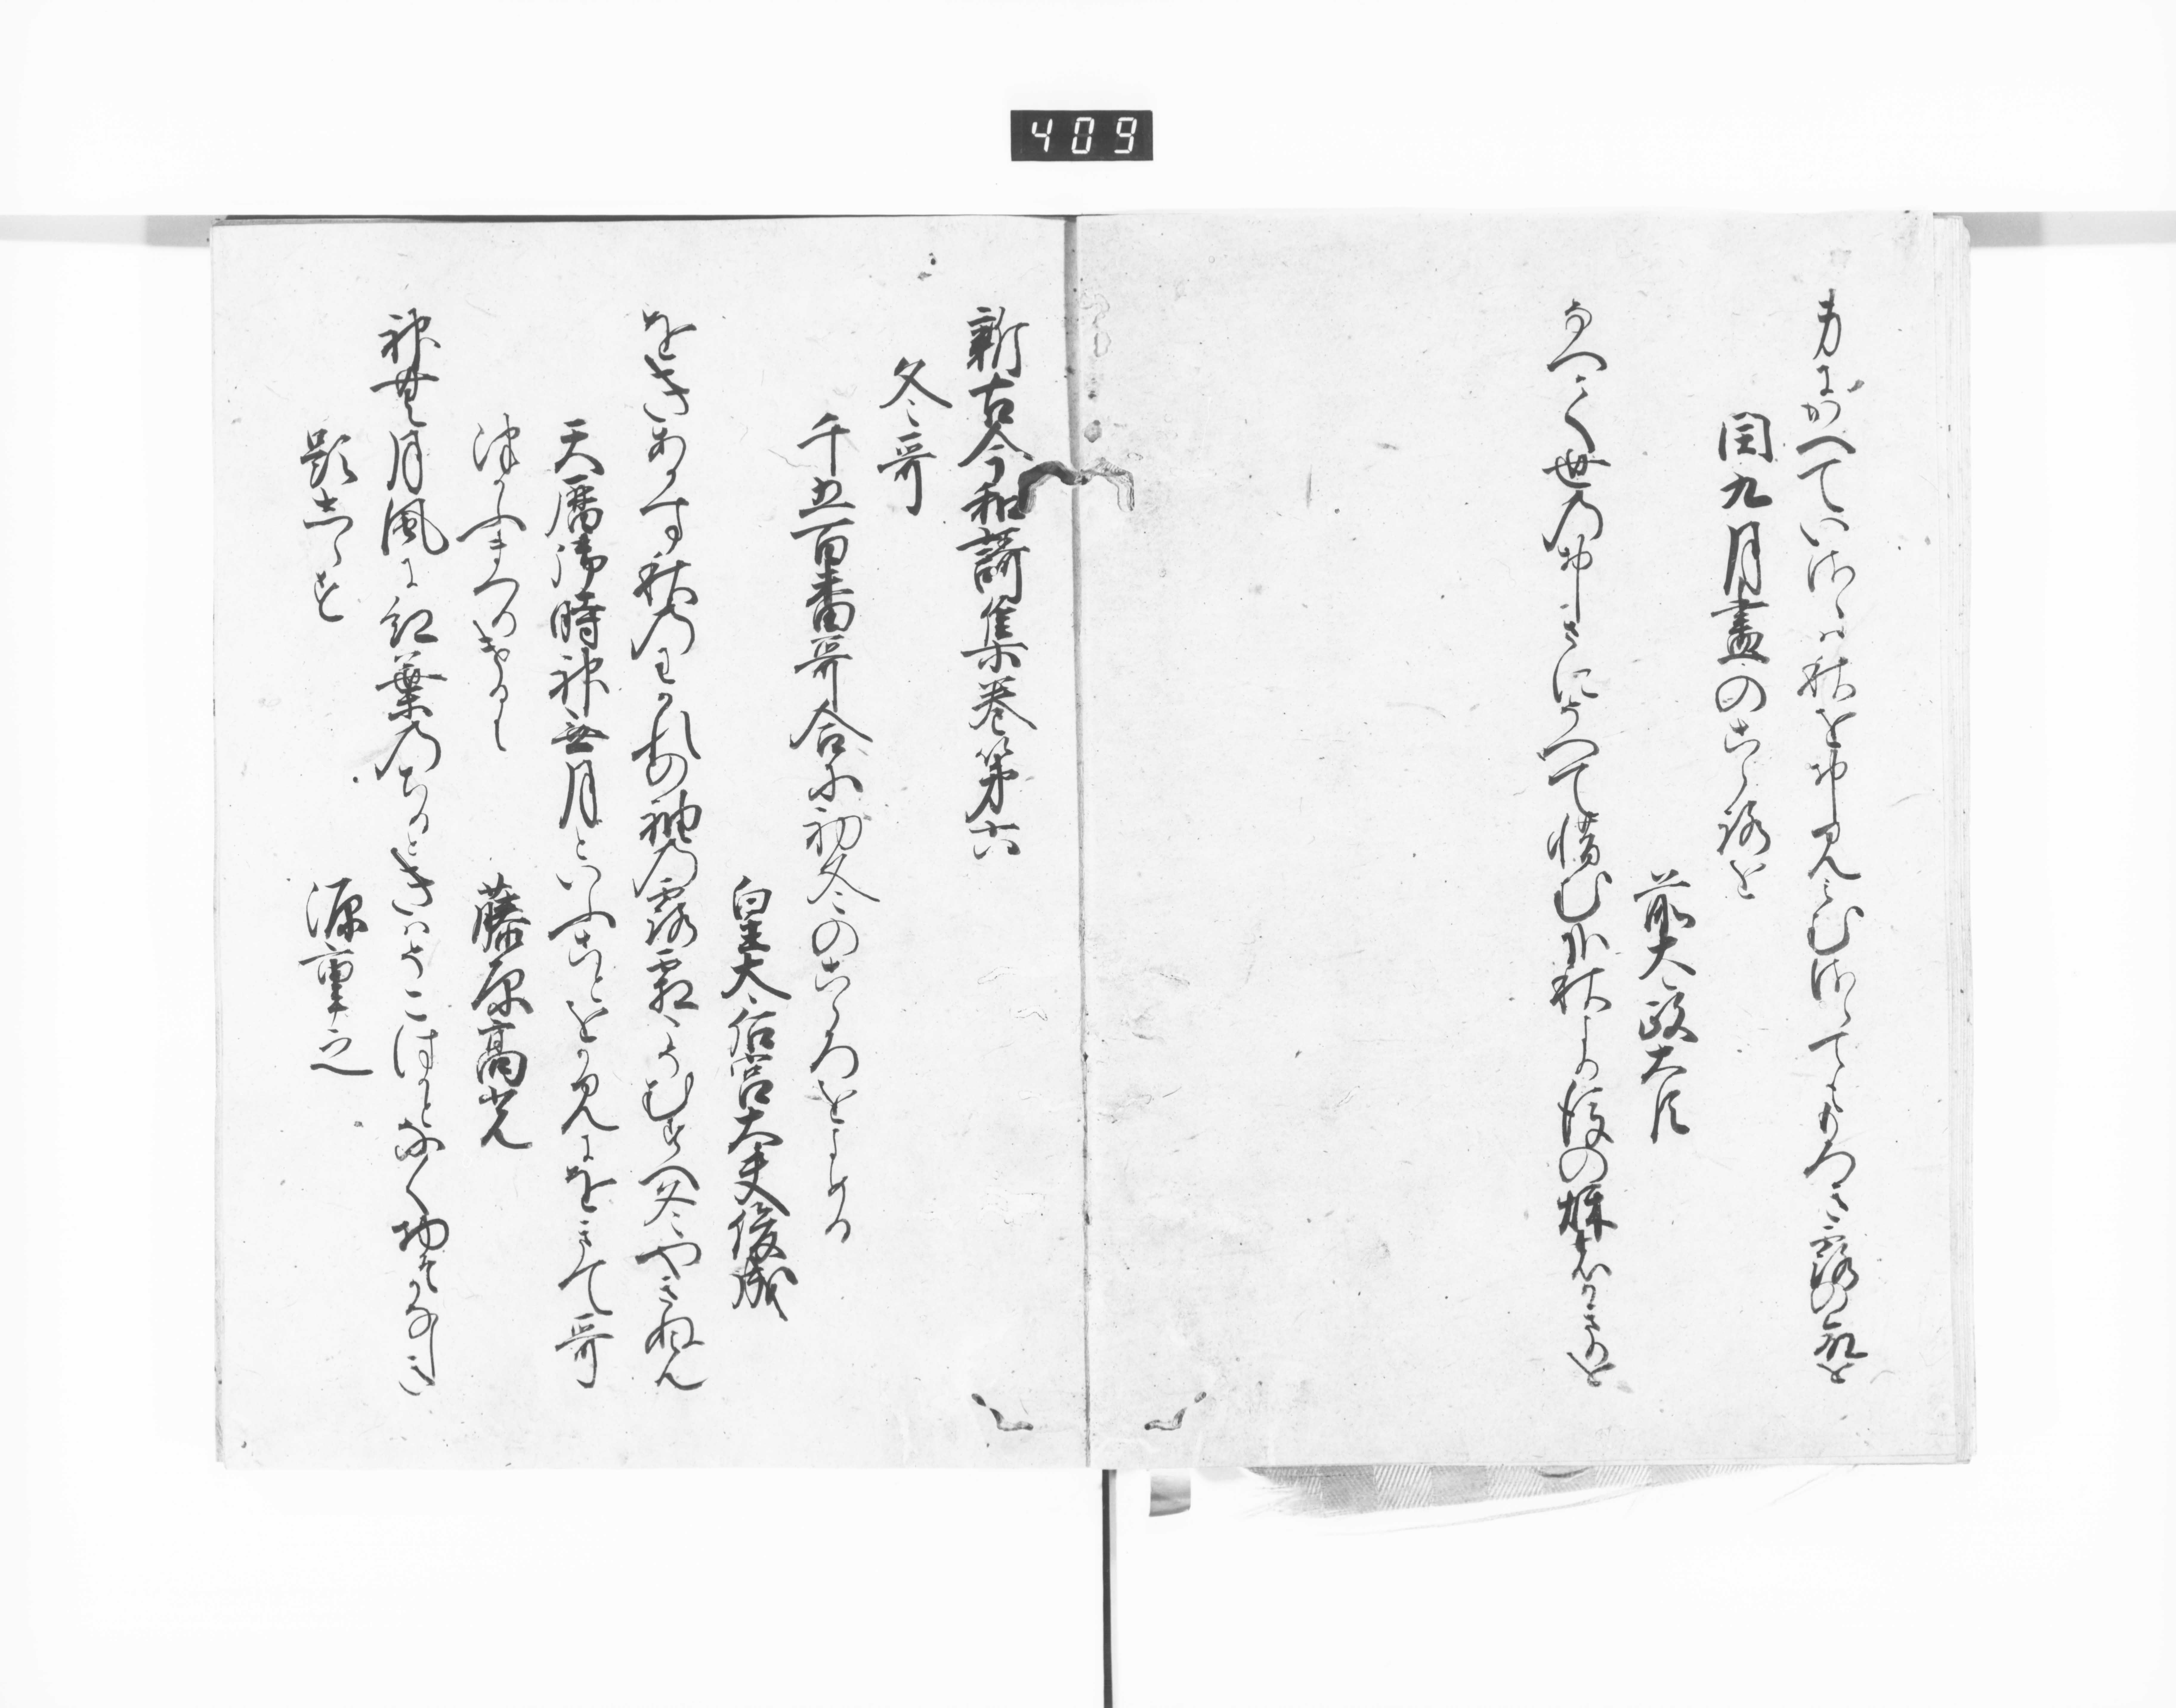 409
身にかへていさゝは秋をおしみゝむさらてももろき露の命を
閏九月盡のこゝろを
前太政大臣
なへて世のおしさにそへて惜むかな秋より後の秋のかきりを
新古今和謌集巻第六
冬哥
千五百番哥合に初冬のこゝろをよめる
皇太后宮大夫俊成
をきあかす秋のわかれの袖の露霜こそむすへ冬やきぬらん
天暦御時神無月といふことをかみにをきて哥
つかうまつりけるに 藤原高光
神無月風に紅葉のちるときはそこはかとなく物そかなしき
題しらす 源重之